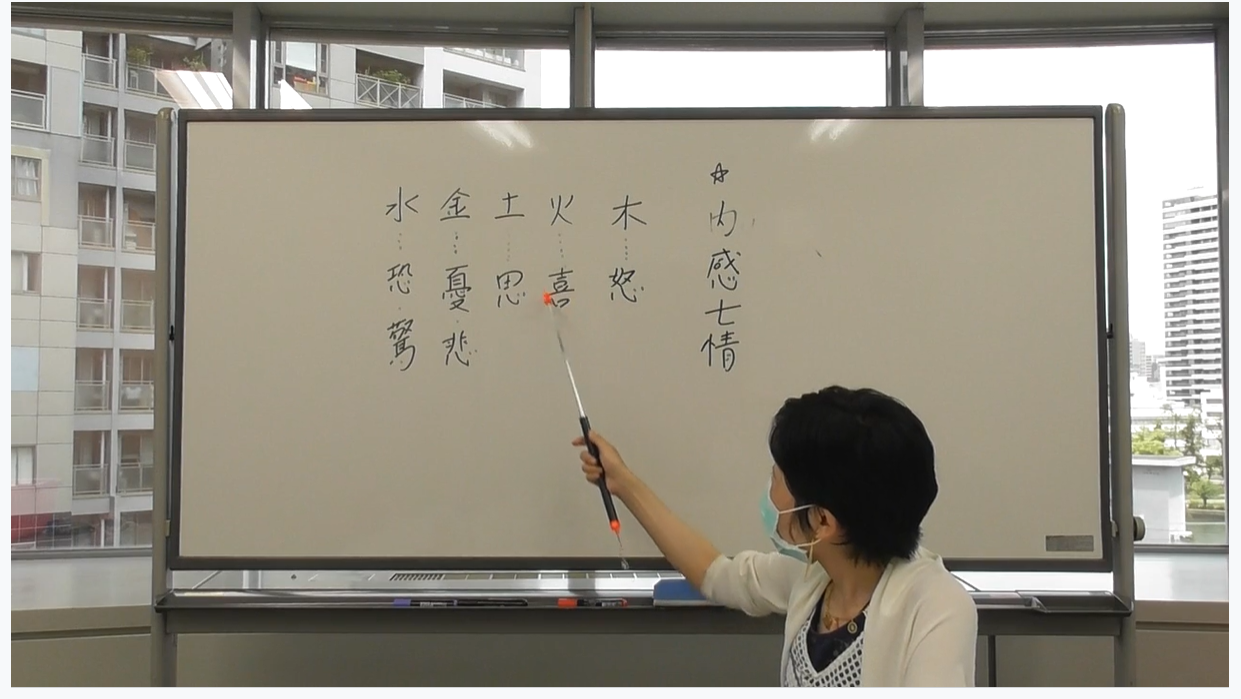 ☆内感七情
木……怒
火……喜
土……思
金……憂・悲
水……恐・驚